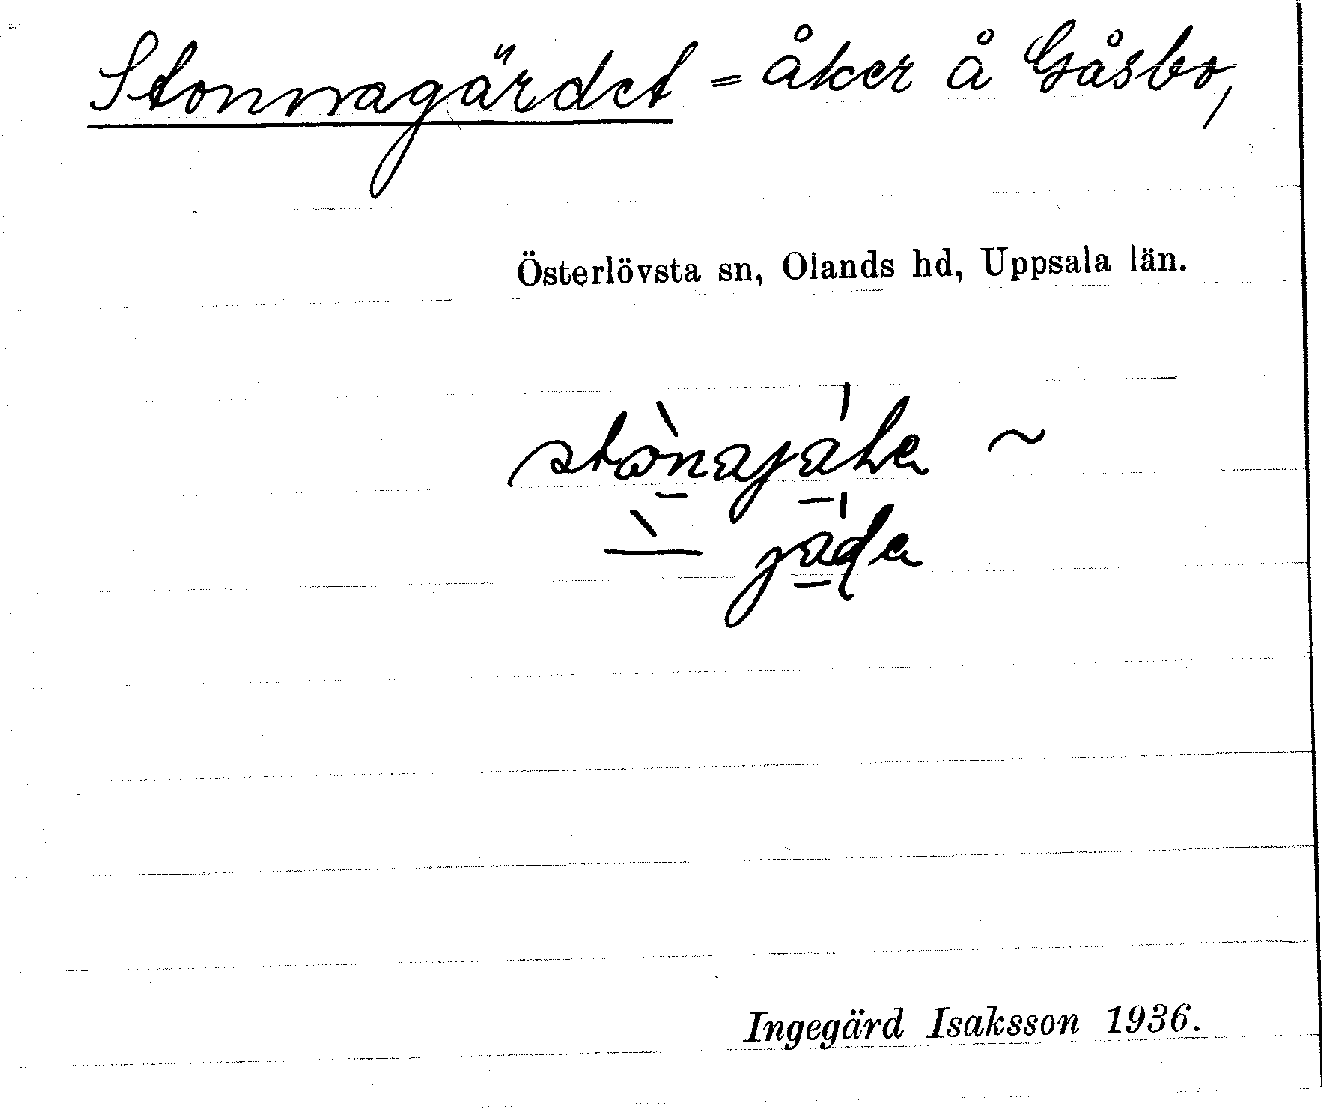 Stonnagärdet = åker å Gåsbo,
Österlövsta sn, Olands hd, Uppsala län.
~
Ingegärd Isaksson 1936.